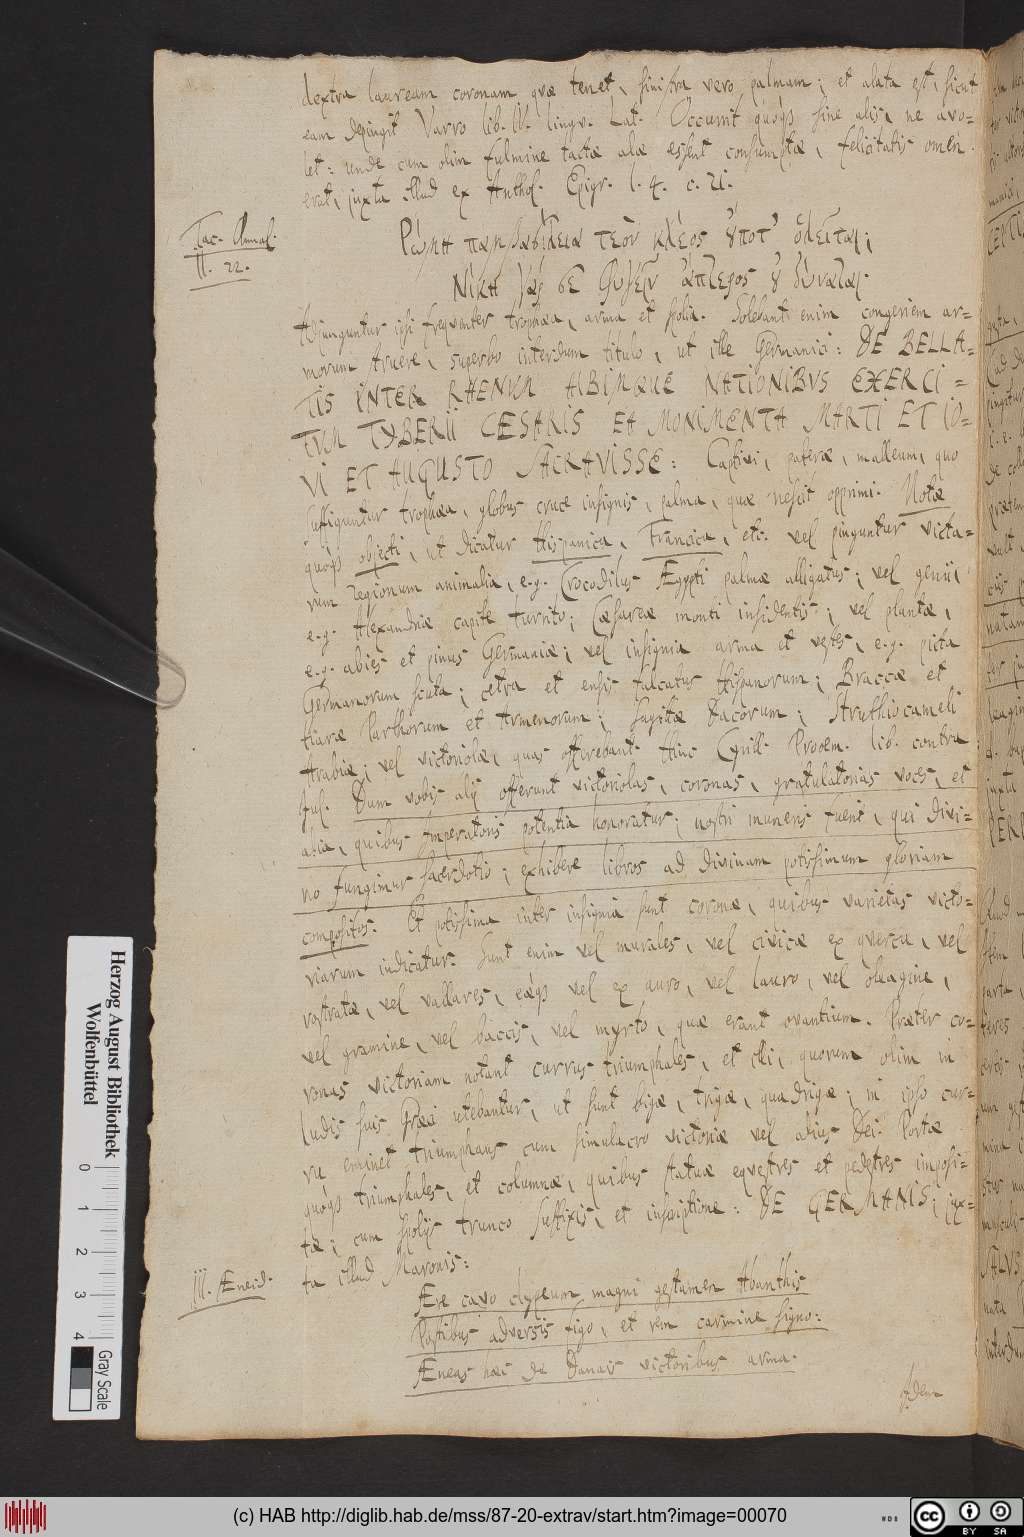 dextra lauream coronam quæ tenet, sinistra vero palmam; et alata est, sicut
eam depingit Varro lib. IV. lingv. Lat. Occurrit quoqs sine alis, ne avo=
let: unde cum olim fulmine tactæ alæ essent consumptæ, felicitatis omen
erat, juxta illud ex Anthol. Epigr. l. 4. c. 21.
Tac. Annal.
II. 22.
Ρώμη παμβασίλεια τεὸν κλέος ȣ́ποτ' ὀλεῖται;
Νίκη γάρ σε φυγεῖν ἄπτερος ȣ δύναται.
Adjunguntur ipsi freqventer trophæa, arma et spolia. Solebant enim congeriem ar=
morum struere, superbo interdum titulo, ut ille Germanici: DE BELLA=
TIS INTER RHENUM ALBIMQUE NATIONIBVS EXERCI=
TVM TYBERII CÆSARIS EA MONIMENTA MARTI ET IO=
VI ET AUGUSTO SACRAVISSE: Captivi, pateræ, malleum, quo
suffiguntur trophæa, globus cruce insignis, palma, quæ nescit opprimi. Notæ
quoqs objecti, ut dicatur Hispanica, Francica, etc: vel pinguntur victa=
rum regionum animalia, e.g. Crocodilus Ægypti palmæ alligatus; vel genii,
e.g. Alexandriæ capite turrito; Cæsareæ monti insidentis; vel plantæ,
e.g. abies et pinus Germaniæ; vel insignia arma et vestes, e.g. picta
Germanorum scuta; cetra et ensis falcatus Hispanorum; Braccæ et
tiaræ Parthorum et Armenorum; sagittæ Dacorum; Struthiocameli
Arabiæ; vel victoriolæ, quas offerebant. Hinc Cyrill. Prooem. lib. contra
Jul. Dum vobis alij offerunt victoriolas, coronas, gratulatorias voces, et
alia, quibus Imperatoris potentia honoratur; nostri muneris fuerit, qui divi=
no fungimur sacerdotio; exhibere libros ad divinam potissimum gloriam
compositos. Et potissima inter insignia sunt coronæ, quibus varietas victo=
riarum indicatur. Sunt enim vel murales, vel civicæ ex qvercu, vel
rostratæ, vel vallares, eæqs vel ex auro, vel lauro, vel oleagine,
vel gramine, vel baccis, vel myrto, quæ erant ovantium. Præter co=
ronas victoriam notant currus triumphales, et illi, quorum olim in
ludis suis Græci utebantur, ut sunt bigæ, trigæ, quadrigæ; in ipso cur=
ru eminet triumphans cum simulacro victoriæ vel alius Dei. Portæ
quoqs triumphales, et columnæ, quibus statuæ eqvestres et pedestres imposi=
tæ; cum spolijs trunco suffixis, et inscriptione: DE GERMANIS; jux=
ta illud Maronis:
III. Æneid.
Ære cavo clypeum magni gestamen Abanthis
Postibus adversis figo, et rem carmine signo:
Æneas hæc de Danais victoribus arma.
Idem
Herzog August Bibliothek
Wolfenbüttel
0 1 2 3 4
Gray Scale
(c) HAB http://diglib.hab.de/mss/87-20-extrav/start.htm?image=00070
CC BY SA